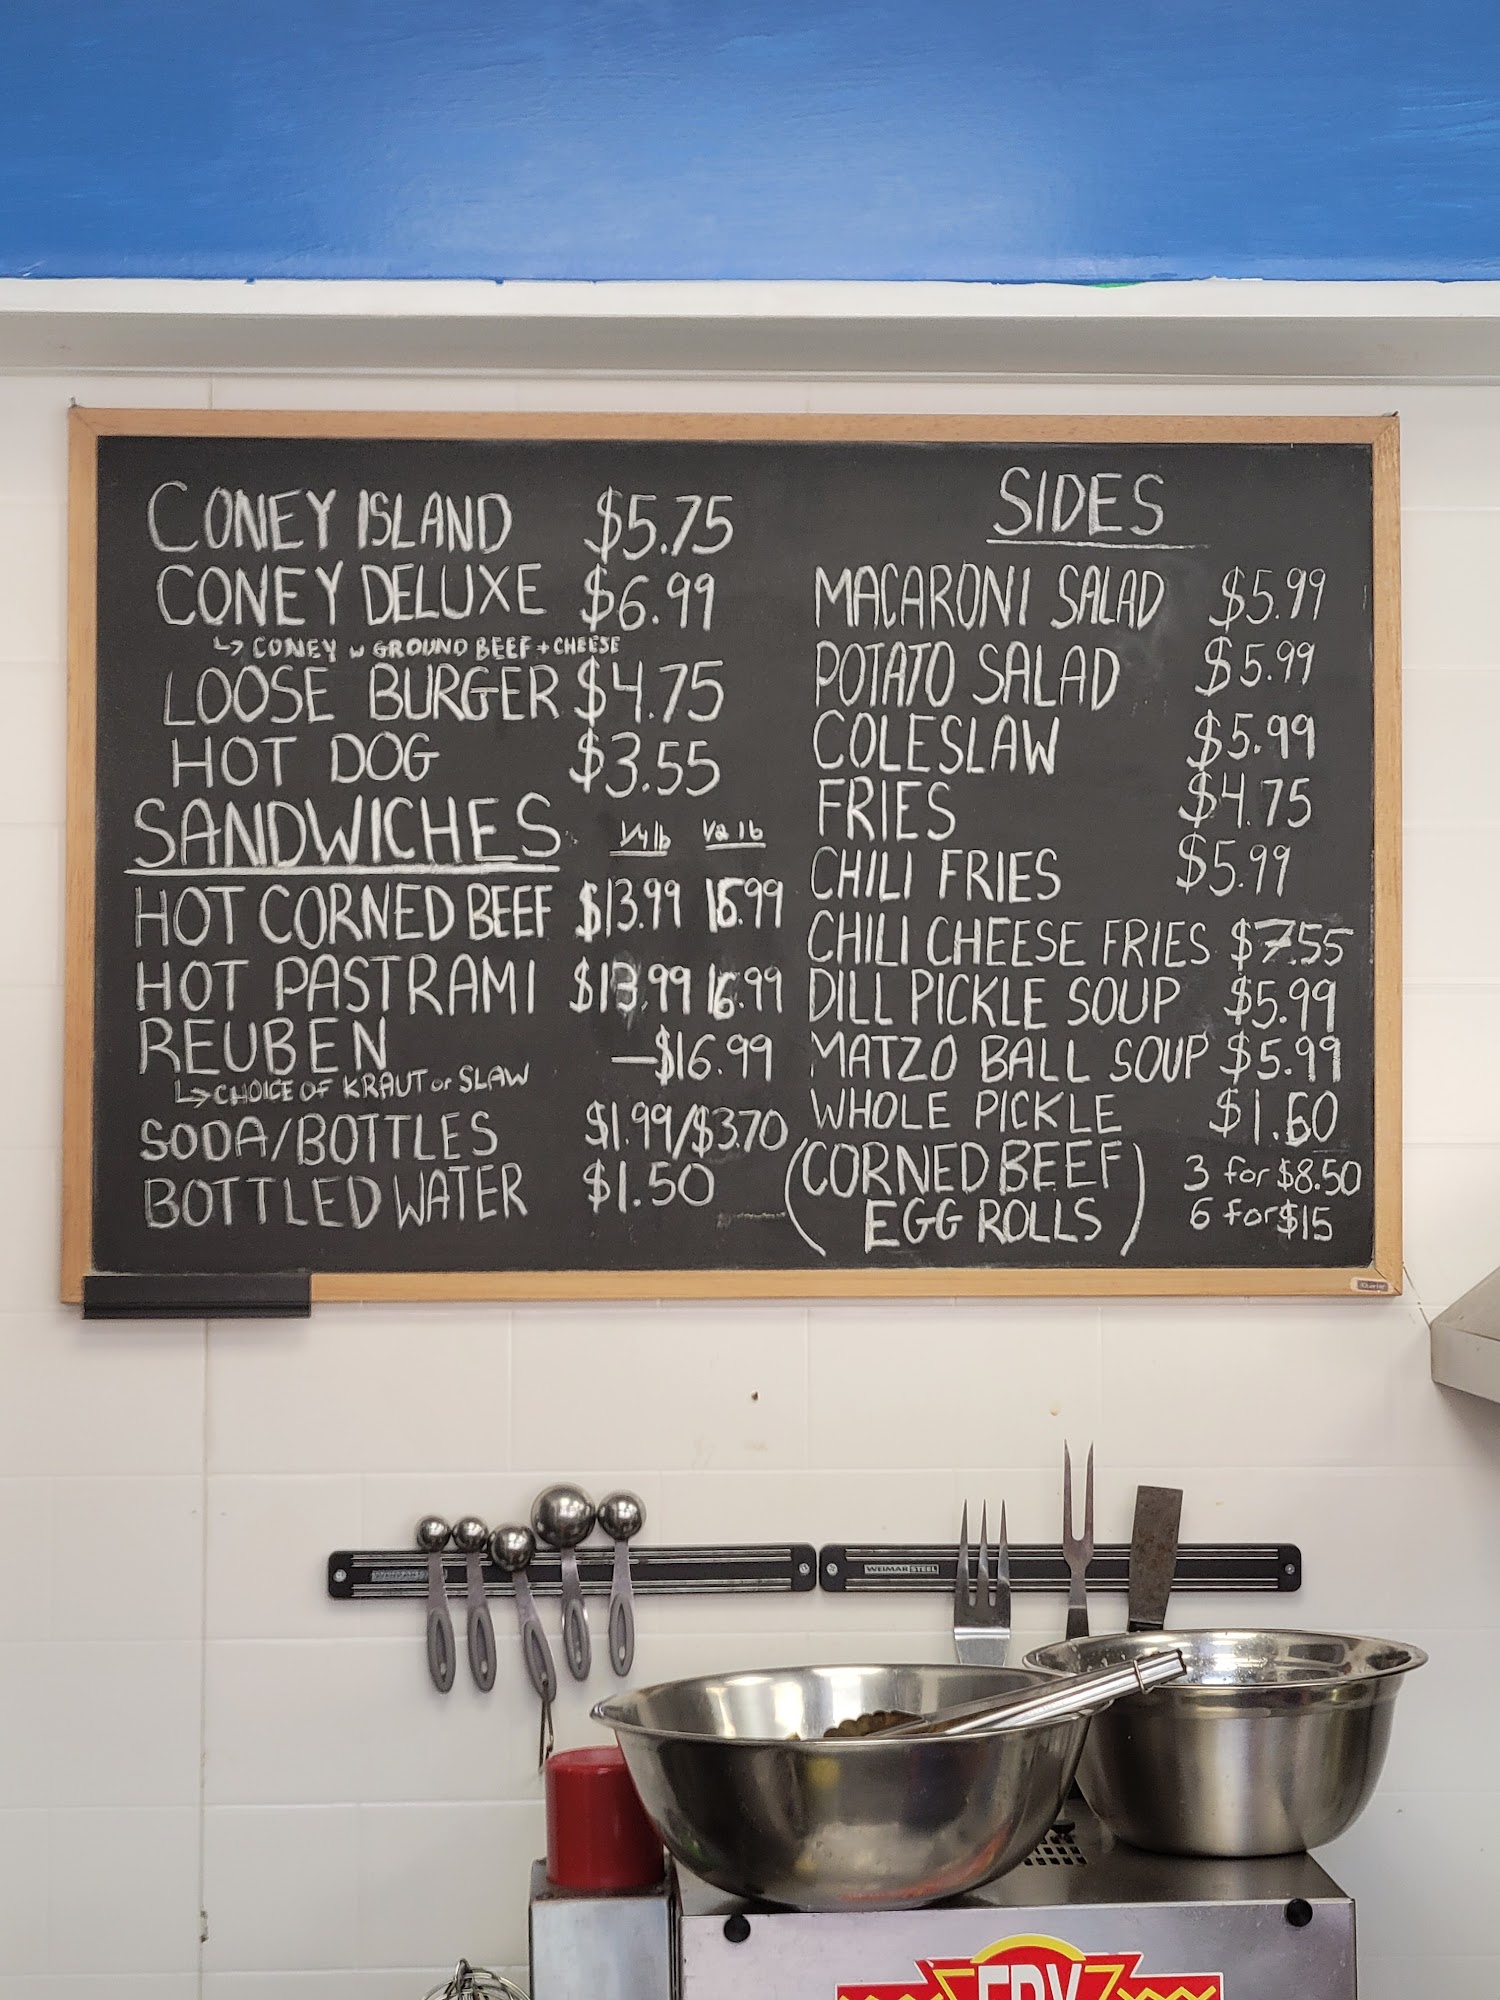 CONEY ISLAND $5.75
CONEY DELUXE $6.99
↳ CONEY w GROUND BEEF + CHEESE
LOOSE BURGER $4.75
HOT DOG $3.55
SANDWICHES 1/4 lb 1/2 lb
HOT CORNED BEEF $13.99 16.99
HOT PASTRAMI $13.99 16.99
REUBEN —$16.99
↳ CHOICE OF KRAUT or SLAW
SODA/BOTTLES $1.99/$3.70
BOTTLED WATER $1.50
SIDES
MACARONI SALAD $5.99
POTATO SALAD $5.99
COLESLAW $5.99
FRIES $4.75
CHILI FRIES $5.99
CHILI CHEESE FRIES $7.55
DILL PICKLE SOUP $5.99
MATZO BALL SOUP $5.99
WHOLE PICKLE $1.60
(CORNED BEEF) 3 for $8.50
EGG ROLLS 6 for $15
WEIMAR STEEL
FRY